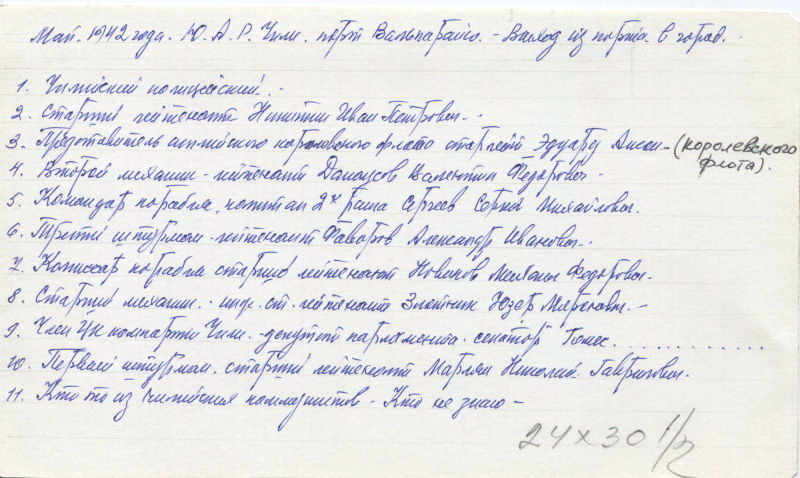 Май. 1942 года. Ю. А. Р. Чили. порт Вальпараисо. - Выход из порта в город.
1. Чилийский полицейский. -
2. Старший лейтенант Никитин Иван Петрович. -
3. Представитель английского королевского флота старший Эдуард - (королевского флота).
4. Второй механик - лейтенант Валентин Федорович -
5. Командир корабля, капитан 2го ранга Сергеев Сергей Михайлович.
6. Третий штурман - лейтенант Фаворов Александр Иванович. -
7. Комиссар корабля старший лейтенант Новиков Михаил Федорович -
8. Старший механик - инж. ст. лейтенант Злотник Юзер Миронович. -
9. Член Цк компартии Чили - депутат парламента. сенатор Гомес. . . . . . . . . . .
10. Первый штурман. старший лейтенант Марлян Николай Гаврилович.
11. Кто то из Чилийских коммунистов - Кто не знаю -
24 x 30 1/2